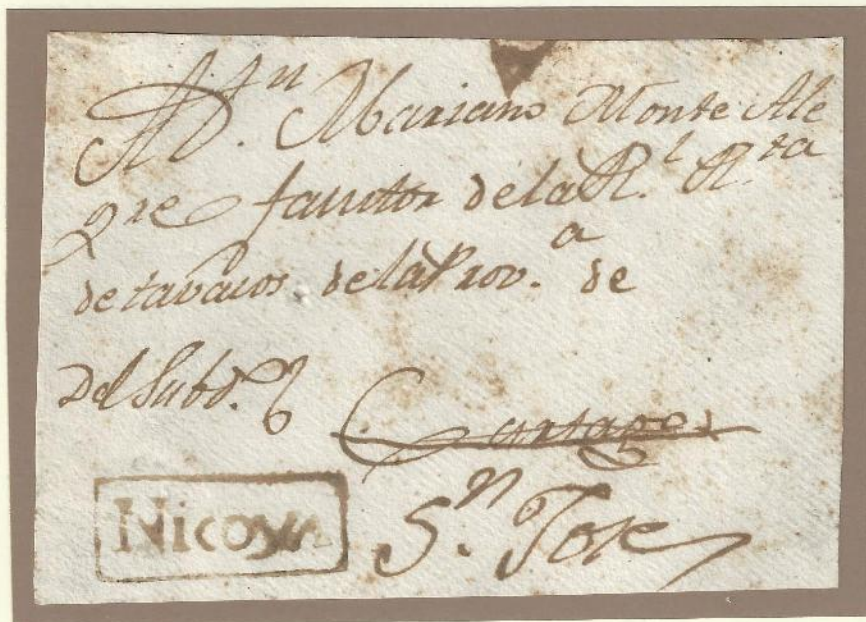 A D.n Mariano Monte Ale
gre factor de la R.l R.ta
de tavacos de la Prov.a de
Del Subd.
Cartago
S.n Jose
Nicoya